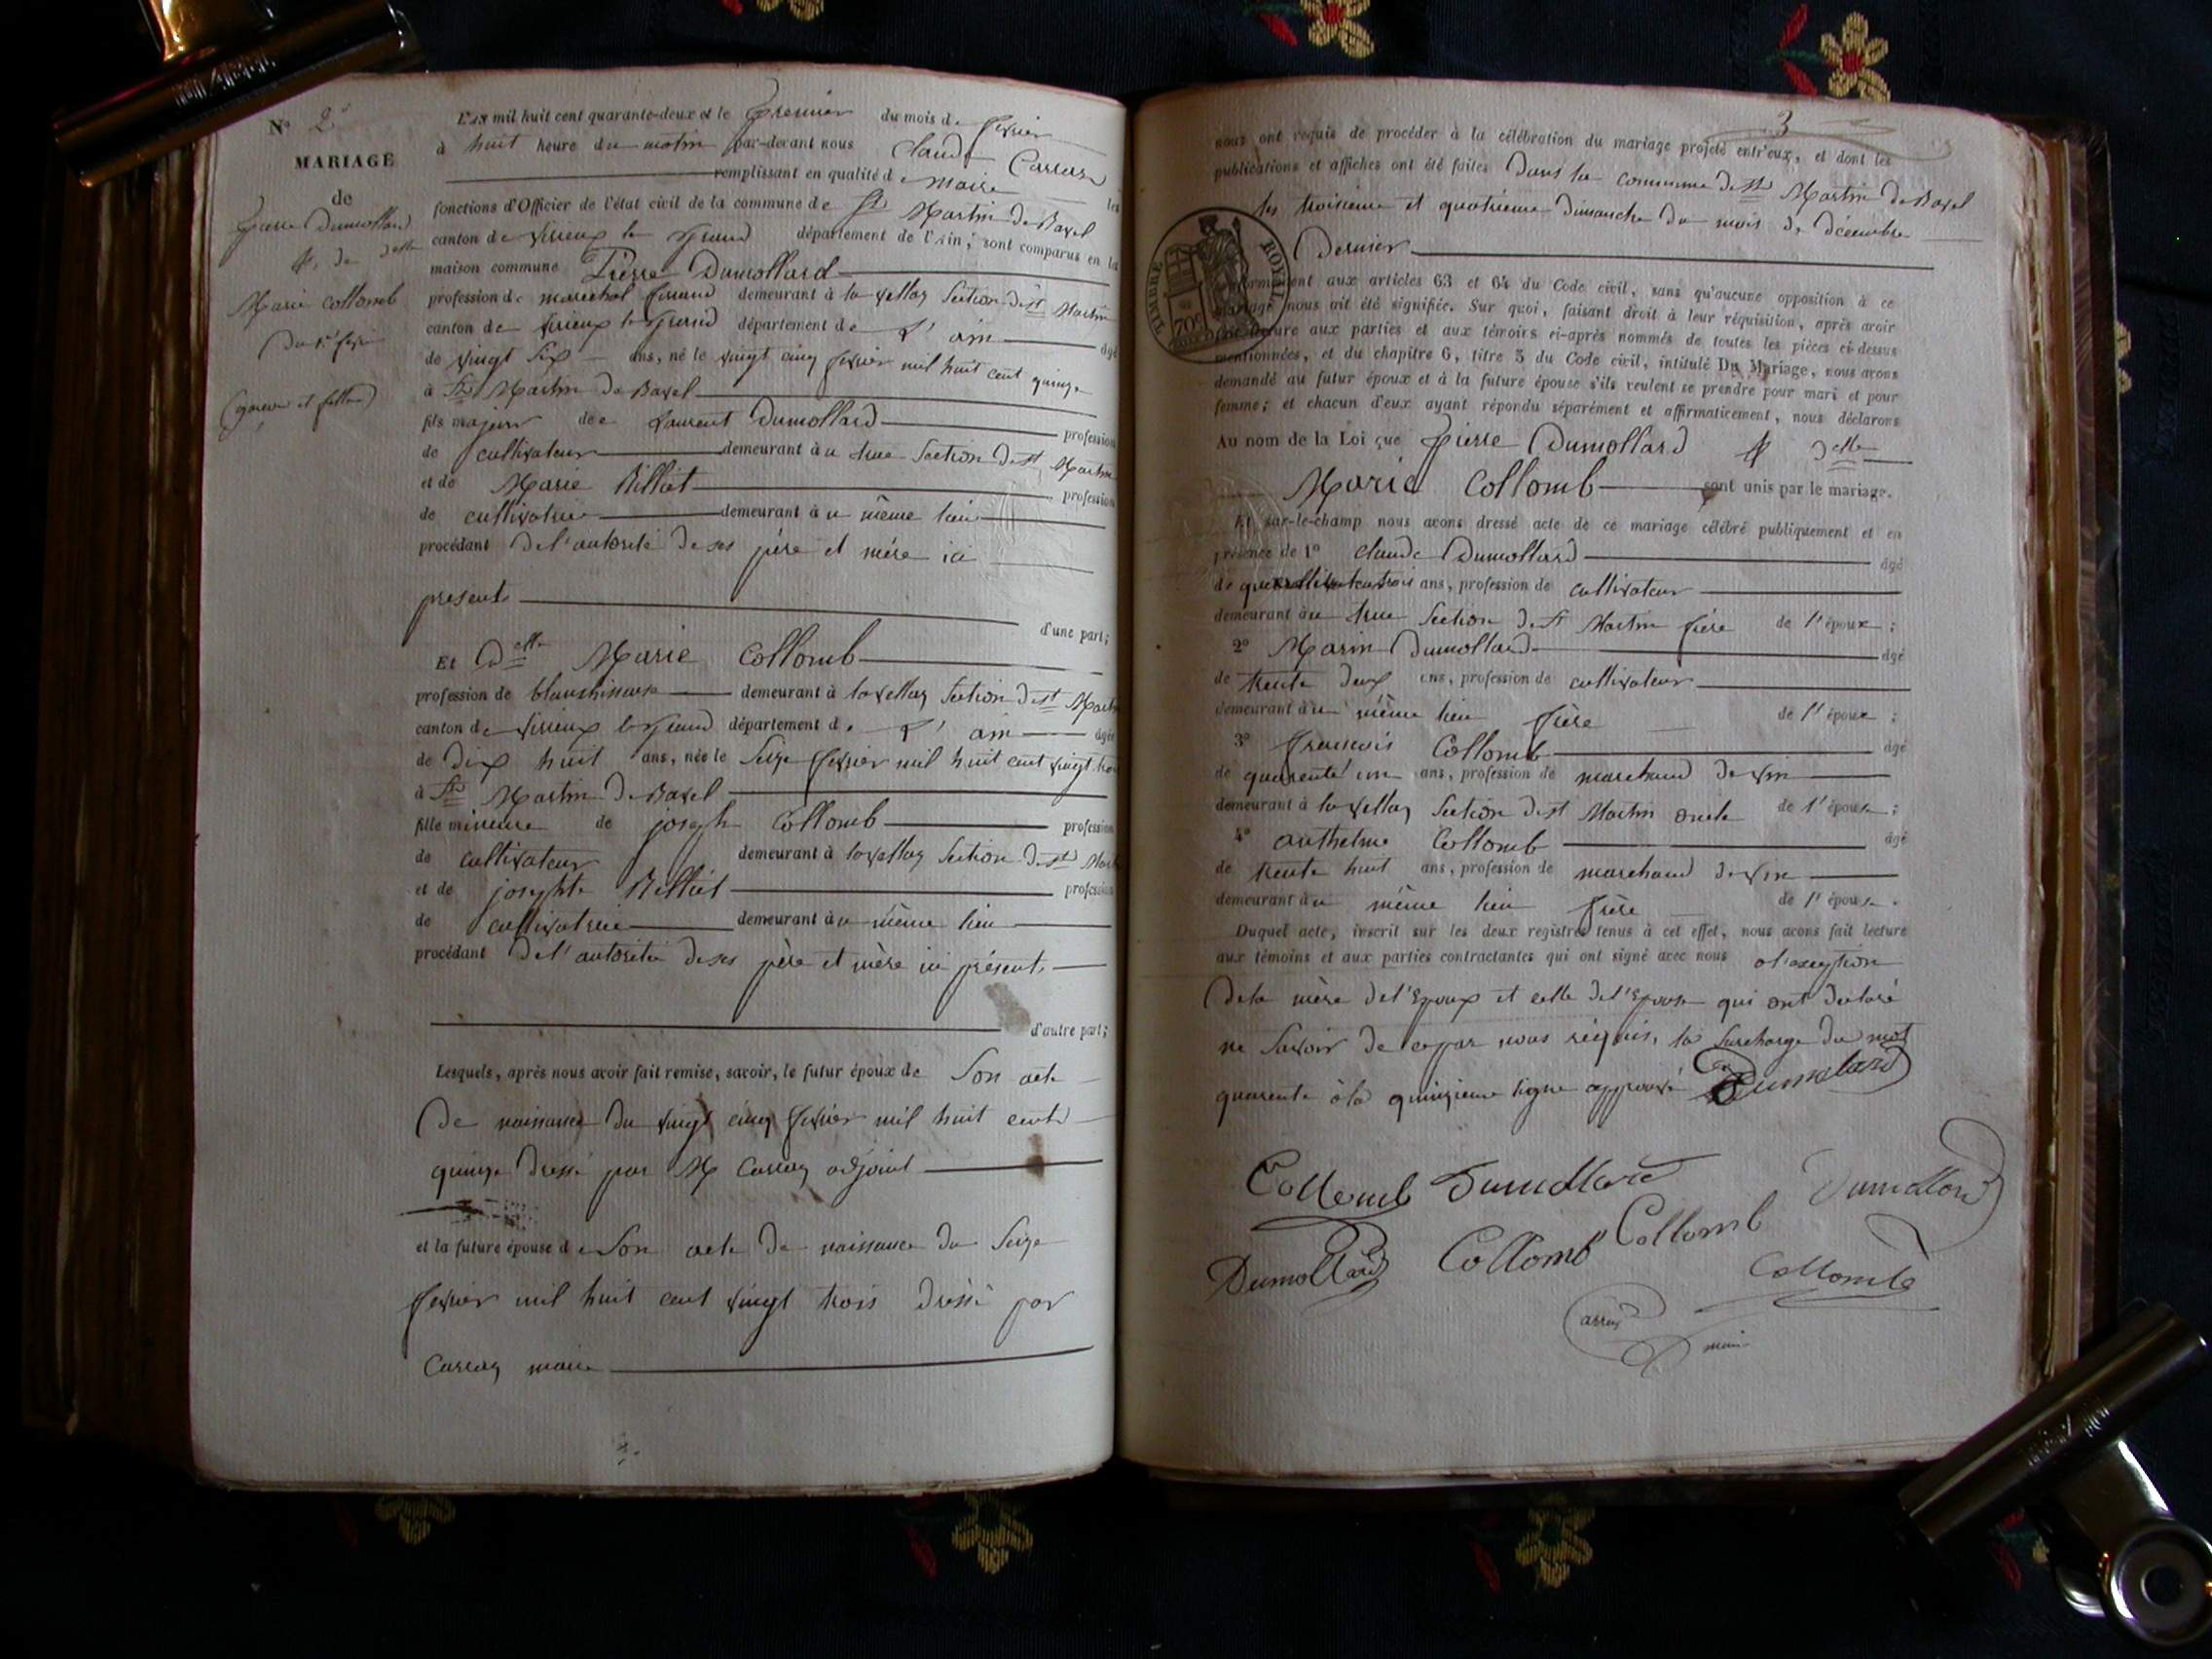 N° 2
MARIAGE
de
Pierre Dumollard
& de delle
Marie Collomb
du 1er fevrier
(garcon et fille)
L'an mil huit cent quarante-deux et le premier du mois de fevrier
à huit heure du matin par-devant nous Claude
remplissant en qualité de maire les
fonctions d'Officier de l'état civil de la commune de St Martin de Bavel
canton de virieux le grand département de l'Ain, sont comparus en la
maison commune Pierre Dumollard
profession de marechal ferrand demeurant à la vellaz Section de st Martin
canton de virieux le grand département de L'ain âgé
de vingt six ans, né le vingt cinq fevrier mil huit cent quinze
à St Martin de Bavel
fils majeur de Laurent Dumollard profession
de cultivateur demeurant à u dite Section de st Martin
et de Marie Billiet profession
de cultivatrice demeurant à u même lieu
procédant de l'autorité de ses père et mère ici
présents
d'une part;
Et Delle Marie Collomb
profession de blanchisseuse demeurant à lavellaz Section de st Martin
canton de virieux le grand département de L'ain âgée
de dix huit ans, née le Seize fevrier mil huit cent vingt trois
à St Martin de Bavel
fille mineure de joseph Collomb profession
de cultivateur demeurant à lavellaz Section de st Martin
et de josephte Billiet profession
de cultivatrice demeurant à u même lieu
procédant de l'autorité de ses père et mère ici présents
d'autre part;
Lesquels, après nous avoir fait remise, savoir, le futur époux de Son acte
de naissance du vingt cinq fevrier mil huit cent
quinze dressé par M adjoint
et la future épouse de Son acte de naissance du Seize
fevrier mil huit cent vingt trois dressé par
maire
3
nous ont requis de procéder à la célébration du mariage projeté entr'eux, et dont les
publications et affiches ont été faites dans la commune de St Martin de Bavel
les troisieme et quatrieme dimanche du mois de décembre
dernier
TIMBRE ROYAL
70c
conformément aux articles 63 et 64 du Code civil, sans qu'aucune opposition à ce
mariage nous ait été signifiée. Sur quoi, faisant droit à leur réquisition, après avoir
fait lecture aux parties et aux témoins ci-après nommés de toutes les pièces ci-dessus
mentionnées, et du chapitre 6, titre 5 du Code civil, intitulé Du Mariage, nous avons
demandé au futur époux et à la future épouse s'ils veulent se prendre pour mari et pour
femme; et chacun d'eux ayant répondu séparément et affirmativement, nous déclarons
Au nom de la Loi que Pierre Dumollard & delle
Marie Collomb sont unis par le mariage.
Et sur-le-champ nous avons dressé acte de ce mariage célébré publiquement et en
présence de 1° Claude Dumollard âgé
de ans, profession de cultivateur
demeurant à u dite Section de St Martin frère de l'époux;
2° Marin Dumollard âgé
de trente deux ans, profession de cultivateur
demeurant à u même lieu frère de l'époux;
3° françois Collomb âgé
de quarente un ans, profession de marchand de vin
demeurant à lavellaz Section de st Martin oncle de l'épouse;
4° anthelme Collomb âgé
de trente huit ans, profession de marchand de vin
demeurant à u même lieu frère de l'épouse.
Duquel acte, inscrit sur les deux registres tenus à cet effet, nous avons fait lecture
aux témoins et aux parties contractantes qui ont signé avec nous a l'exception
de la mère de l'Epoux et celle de l'Epouse qui ont declaré
ne Savoir de ce par nous réquis, la Surcharge du mot
quarente à la quinzieme ligne approuvé Dumolard
Collomb Dumollard Dumollard
Dumollard Collomb Collomb Collomb
maire